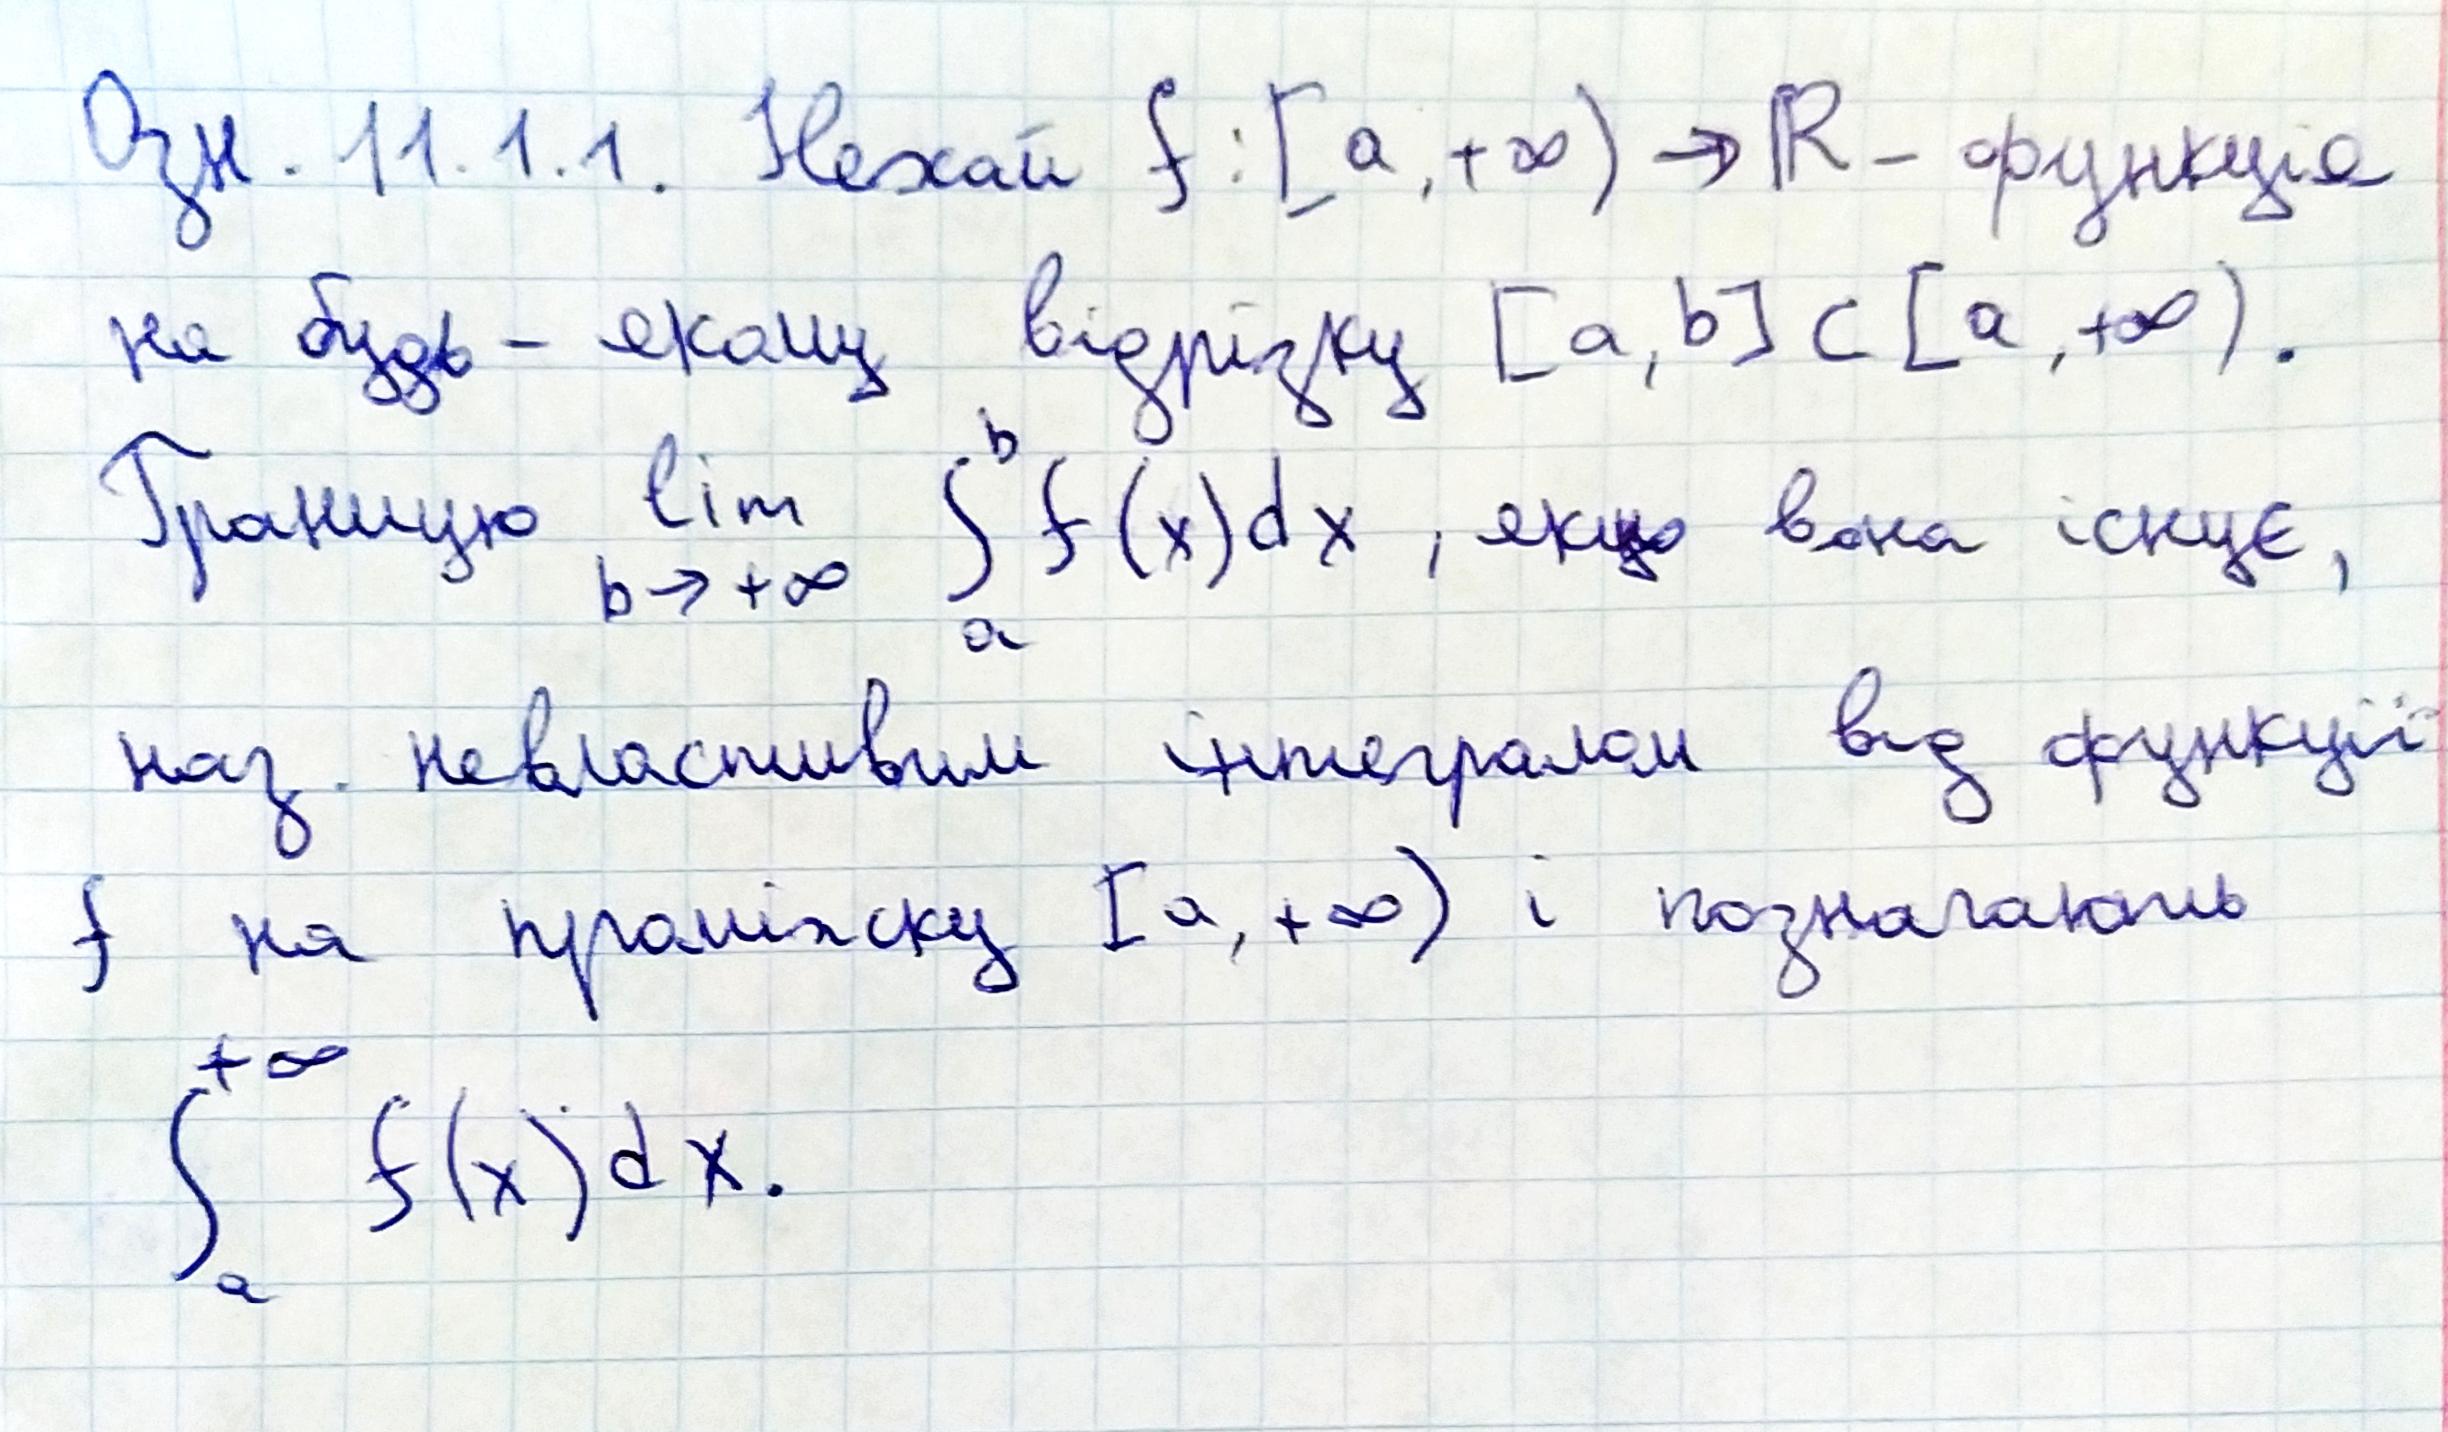 Озн. 11.1.1. Нехай f : [a, +∞) → ℝ - функція
на будь - якому відрізку [a, b] ⊂ [a, +∞).
Границю lim b → +∞ ∫ₐᵇ f(x)dx, якщо вона існує,
наз. невластивим інтегралом від функції
f на проміжку [a, +∞) і позначають
∫ₐ⁺∞ f(x)dx.